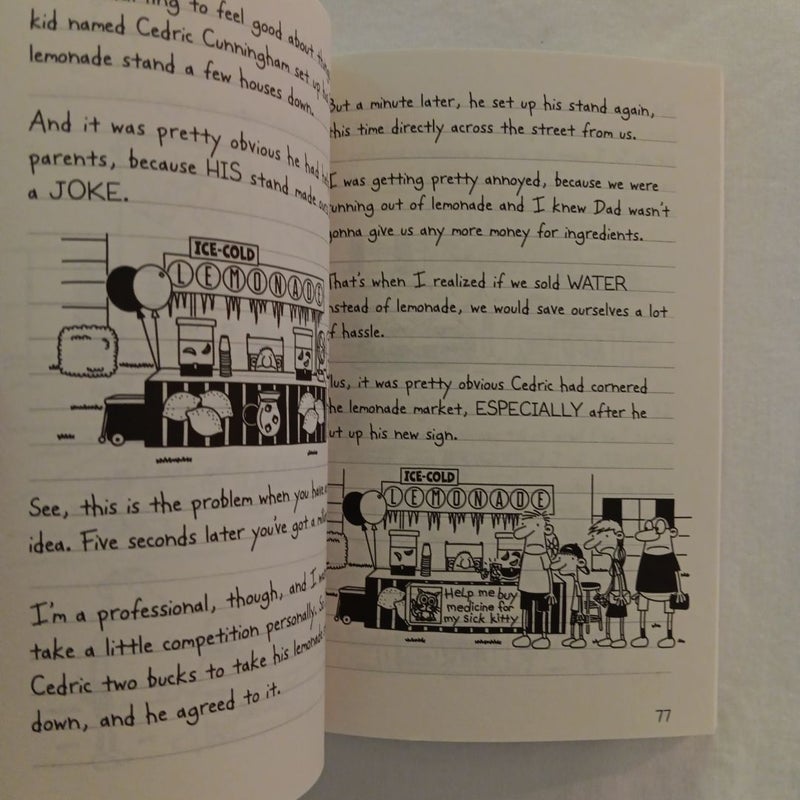 to feel good about
kid named Cedric Cunningham set up
lemonade stand a few houses down.
And it was pretty obvious he had
parents, because HIS stand made
a JOKE.
ICE-COLD
LEMONADE
See, this is the problem when you have
idea. Five seconds later you've got a
I'm a professional, though, and I
take a little competition personally.
Cedric two bucks to take his lemonade
down, and he agreed to it.
But a minute later, he set up his stand again,
this time directly across the street from us.
I was getting pretty annoyed, because we were
running out of lemonade and I knew Dad wasn't
gonna give us any more money for ingredients.
That's when I realized if we sold WATER
instead of lemonade, we would save ourselves a lot
of hassle.
Plus, it was pretty obvious Cedric had cornered
the lemonade market, ESPECIALLY after he
put up his new sign.
ICE-COLD
LEMONADE
Help me buy
medicine for
my sick kitty
77